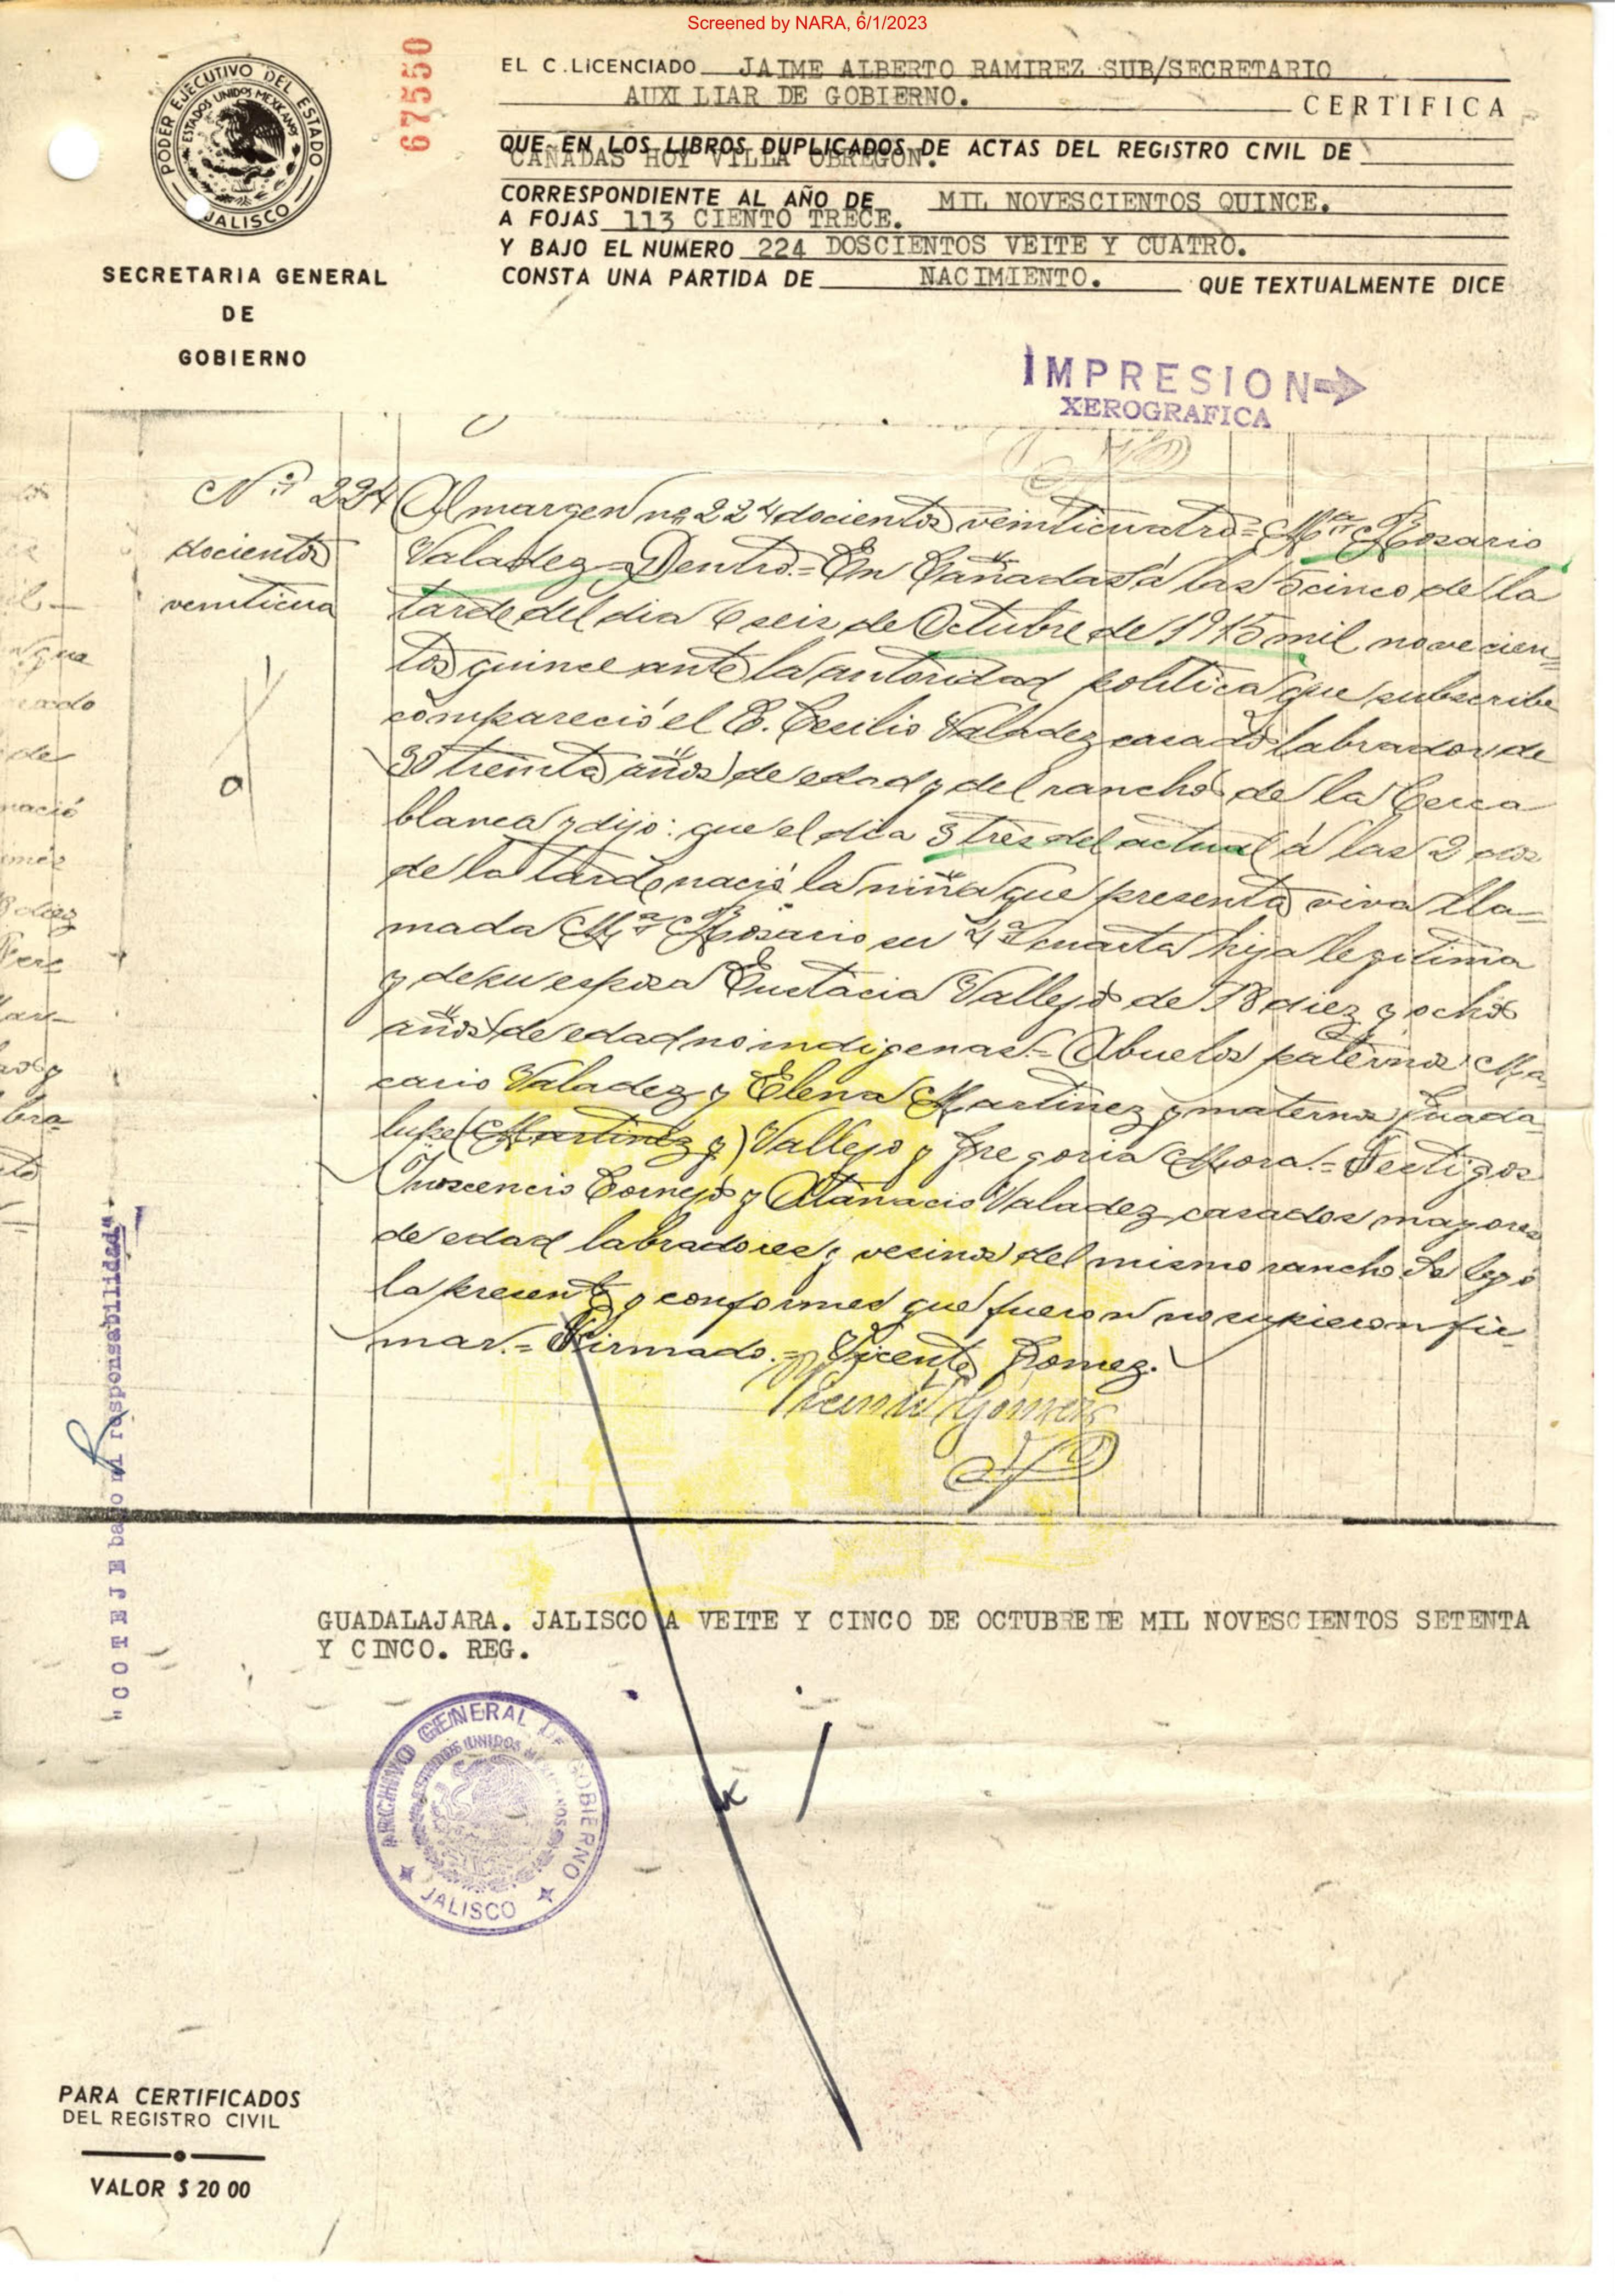 Screened by NARA, 6/1/2023
PODER EJECUTIVO DEL ESTADO
ESTADOS UNIDOS MEXICANOS
JALISCO
67550
SECRETARIA GENERAL
DE
GOBIERNO
EL C.LICENCIADO JAIME ALBERTO RAMIREZ SUB/SECRETARIO
AUXILIAR DE GOBIERNO. CERTIFICA
QUE EN LOS LIBROS DUPLICADOS DE ACTAS DEL REGISTRO CIVIL DE
CAÑADAS HOY VILLA OBREGON.
CORRESPONDIENTE AL AÑO DE MIL NOVESCIENTOS QUINCE.
A FOJAS 113 CIENTO TRECE.
Y BAJO EL NUMERO 224 DOSCIENTOS VEITE Y CUATRO.
CONSTA UNA PARTIDA DE NACIMIENTO. QUE TEXTUALMENTE DICE
IMPRESION
XEROGRAFICA
Nº 224
docientos
veinticua
Al margen nº 224 docientos veinticuatro = Mª Rosario
Valadez = Dentro.= En Cañadas á las 5 cinco de la
tarde del dia 6 seis de Octubre de 1915 mil novecien=
tos quince ante la autoridad politica que subscribe
compareció el C. Cecilio Valadez casado labrador de
30 treinta años de edad y del rancho de la Cerca
blanca y dijo: que el dia 3 tres del actual á las 2 dos
de la tarde nació la niña que presenta viva lla=
mada Mª Rosario su 4ª cuarta hija legitima
y de su esposa Eustacia Vallejo de 18 diez y ocho
años de edad no indigenas.= Abuelos paternos Ma
cario Valadez y Elena Martinez y maternos Guada
lupe (Martinez y) Vallejo y Gregoria Mora.= Testigos
Inoscencio Cornejo y Atanacio Valadez casados mayores
de edad labradores y vesinos del mismo rancho Se leyó
la presente y conformes que fueron no supieron fir
mar.= Firmado.= Vicente Gomez.
Vicente Gomez
"COTEJE bajo mi responsabilidad"
GUADALAJARA. JALISCO A VEITE Y CINCO DE OCTUBRE DE MIL NOVESCIENTOS SETENTA
Y CINCO. REG.
ARCHIVO GENERAL DE GOBIERNO
ESTADOS UNIDOS MEXICANOS
JALISCO
PARA CERTIFICADOS
DEL REGISTRO CIVIL
VALOR $ 20 00